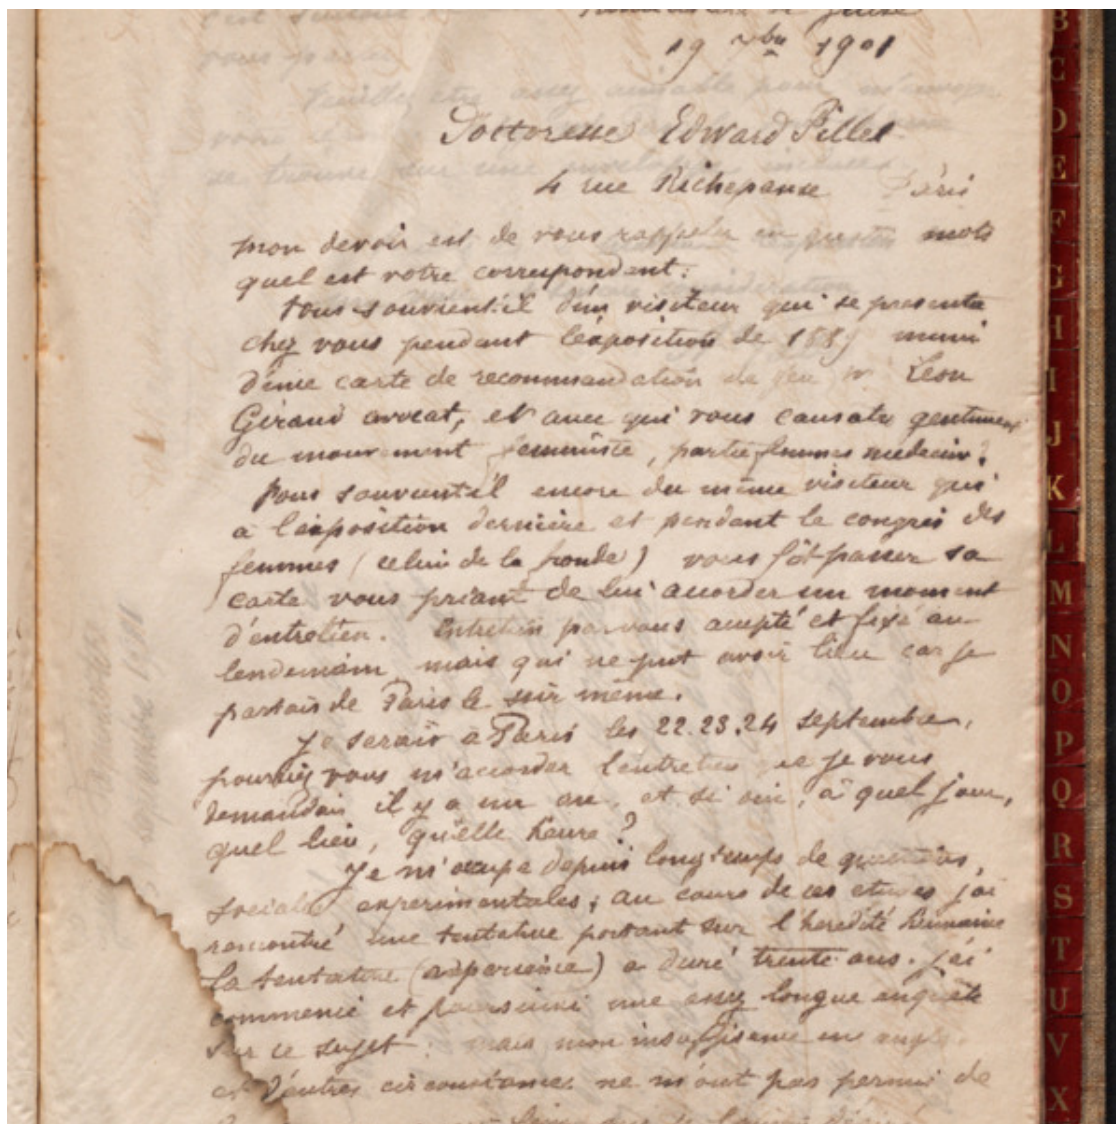 19 7bre 1901
Doctoresse Edward Pillet
4 rue Richepanse Paris
mon devoir est de vous rappeler en quatre mots
quel est votre correspondant.
Vous souvient-il d'un visiteur qui se presenta
chez vous pendant l'exposition de 1889 muni
d'une carte de recommandation de feu Mr Léon
Giraud avocat, et avec qui vous causate gentiment
du mouvement feministe, partie femmes medecin?
Vous souvient-il encore du même visiteur qui
a l'exposition dernière et pendant le congrès des
femmes (celui de la fronde) vous fit passer sa
carte vous priant de lui accorder un moment
d'entretien. Entretien par vous accepté et fixé au
lendemain mais qui ne put avoir lieu car je
partais de Paris le soir même.
Je serais a Paris les 22.23.24 septembre,
pourriez vous m'accorder l'entretien que je vous
demandais il y a un an, et si oui, à quel jour,
quel lieu, qu'elle heure?
Je m'occupe depuis longtemps de questions
sociales experimentales; au cours de ces etudes j'ai
rencontré une tentative portant sur l'heredité humaine
la tentative (experience) a duré trente ans. j'ai
commencé et poursuivi une assez longue enquête
sur ce sujet: mais mon insuffisance en
et d'autres circonstances ne m'ont pas permis de
B
C
D
E
F
G
H
I
J
K
L
M
N
O
P
Q
R
S
T
U
V
X